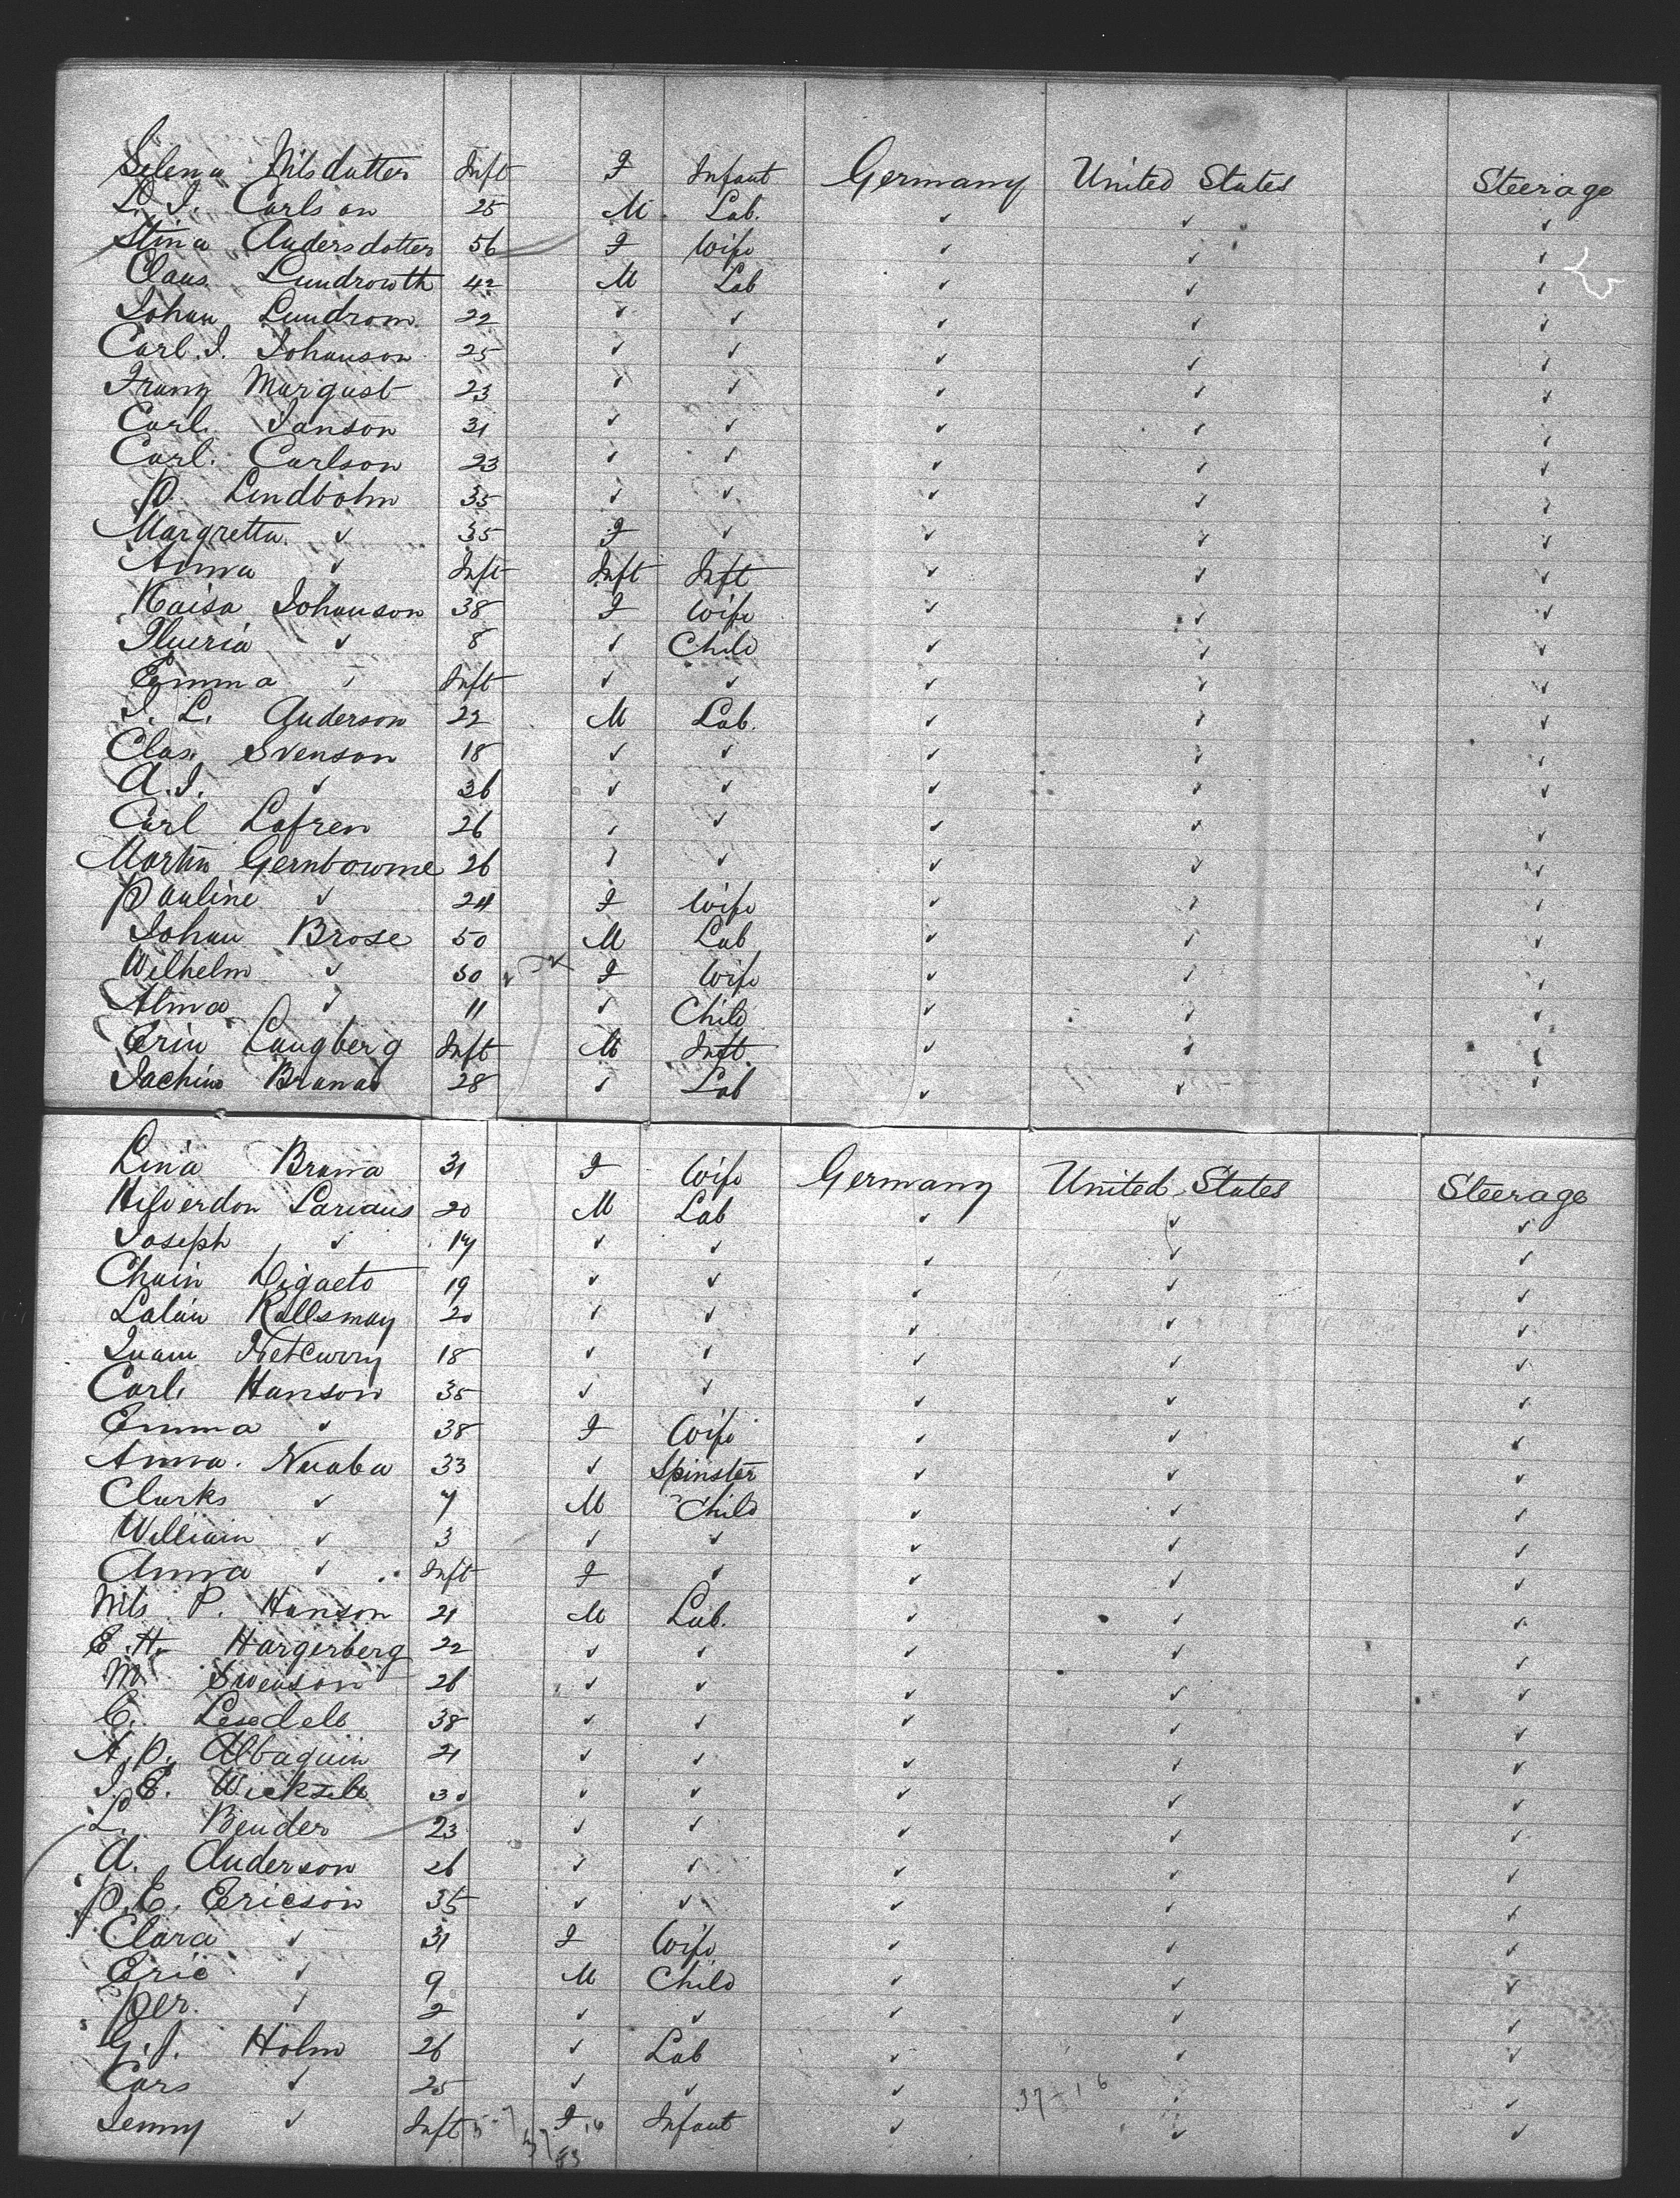 Selena Nilsdatter Inft F Infant Germany United States Steerage
L. J. Carlson 25 M Lab. ✓ ✓ ✓
Stina Andersdotter 56 F Wife ✓ ✓ ✓
Claus Lundrowth 42 M Lab ✓ ✓ ✓
Johan Lundrom 22 ✓ ✓ ✓ ✓ ✓
Carl. J. Johanson 25 ✓ ✓ ✓ ✓ ✓
Franz Margast 23 ✓ ✓ ✓ ✓ ✓
Carl. Janson 31 ✓ ✓ ✓ ✓ ✓
Carl. Carlson 23 ✓ ✓ ✓ ✓ ✓
P. Lindbohm 35 ✓ ✓ ✓ ✓ ✓
Margretta ✓ 35 F ✓ ✓ ✓ ✓
Anna ✓ Inft Inft Inft ✓ ✓ ✓
Kaisa Johanson 38 F Wife ✓ ✓ ✓
✓ 8 ✓ Child ✓ ✓ ✓
Emma ✓ Inft ✓ ✓ ✓ ✓ ✓
J. L. Anderson 22 M Lab. ✓ ✓ ✓
Clas. Svenson 18 ✓ ✓ ✓ ✓ ✓
A. J. ✓ 36 ✓ ✓ ✓ ✓ ✓
Carl Lofren 26 ✓ ✓ ✓ ✓ ✓
Martin Gernbowme 26 ✓ ✓ ✓ ✓ ✓
Pauline ✓ 24 F Wife ✓ ✓ ✓
Johan Brose 50 M Lab ✓ ✓ ✓
Wilhelm ✓ 50 F Wife ✓ ✓ ✓
Alma ✓ 11 ✓ Child ✓ ✓ ✓
Erin Langberg Inft M Inft. ✓ ✓ ✓
Jachim 28 ✓ Lab ✓ ✓ ✓
Lina Bruna 31 F Wife Germany United States Steerage
Lariaus 20 M Lab ✓ ✓ ✓
Joseph ✓ 17 ✓ ✓ ✓ ✓ ✓
Chain Digaeto 19 ✓ ✓ ✓ ✓ ✓
Rallsmay 20 ✓ ✓ ✓ ✓ ✓
18 ✓ ✓ ✓ ✓ ✓
Carl. Hanson 35 ✓ ✓ ✓ ✓ ✓
Emma ✓ 38 F Wife ✓ ✓ ✓
Anna. Nuaba 33 ✓ Spinster ✓ ✓ ✓
Clarks ✓ 7 M Child ✓ ✓ ✓
William ✓ 3 ✓ ✓ ✓ ✓ ✓
Anna ✓ Inft F ✓ ✓ ✓ ✓
Nils P. Hanson 21 M Lab. ✓ ✓ ✓
E. H. Hargerberg 22 ✓ ✓ ✓ ✓ ✓
M. Swenson 26 ✓ ✓ ✓ ✓ ✓
C. Lesdell 38 ✓ ✓ ✓ ✓ ✓
A. P. Albaquin 21 ✓ ✓ ✓ ✓ ✓
J. E. Wicksell 30 ✓ ✓ ✓ ✓ ✓
L. Bender 23 ✓ ✓ ✓ ✓ ✓
A. Anderson 26 ✓ ✓ ✓ ✓ ✓
P. E. Ericson 35 ✓ ✓ ✓ ✓ ✓
Clara ✓ 31 F Wife ✓ ✓ ✓
Eric ✓ 9 M Child ✓ ✓ ✓
Per. ✓ 2 ✓ ✓ ✓ ✓ ✓
G. J. Holm 26 ✓ Lab ✓ ✓ ✓
Cars ✓ 25 ✓ ✓ ✓ ✓ ✓
Jenny ✓ Inft F Infant ✓ ✓ ✓